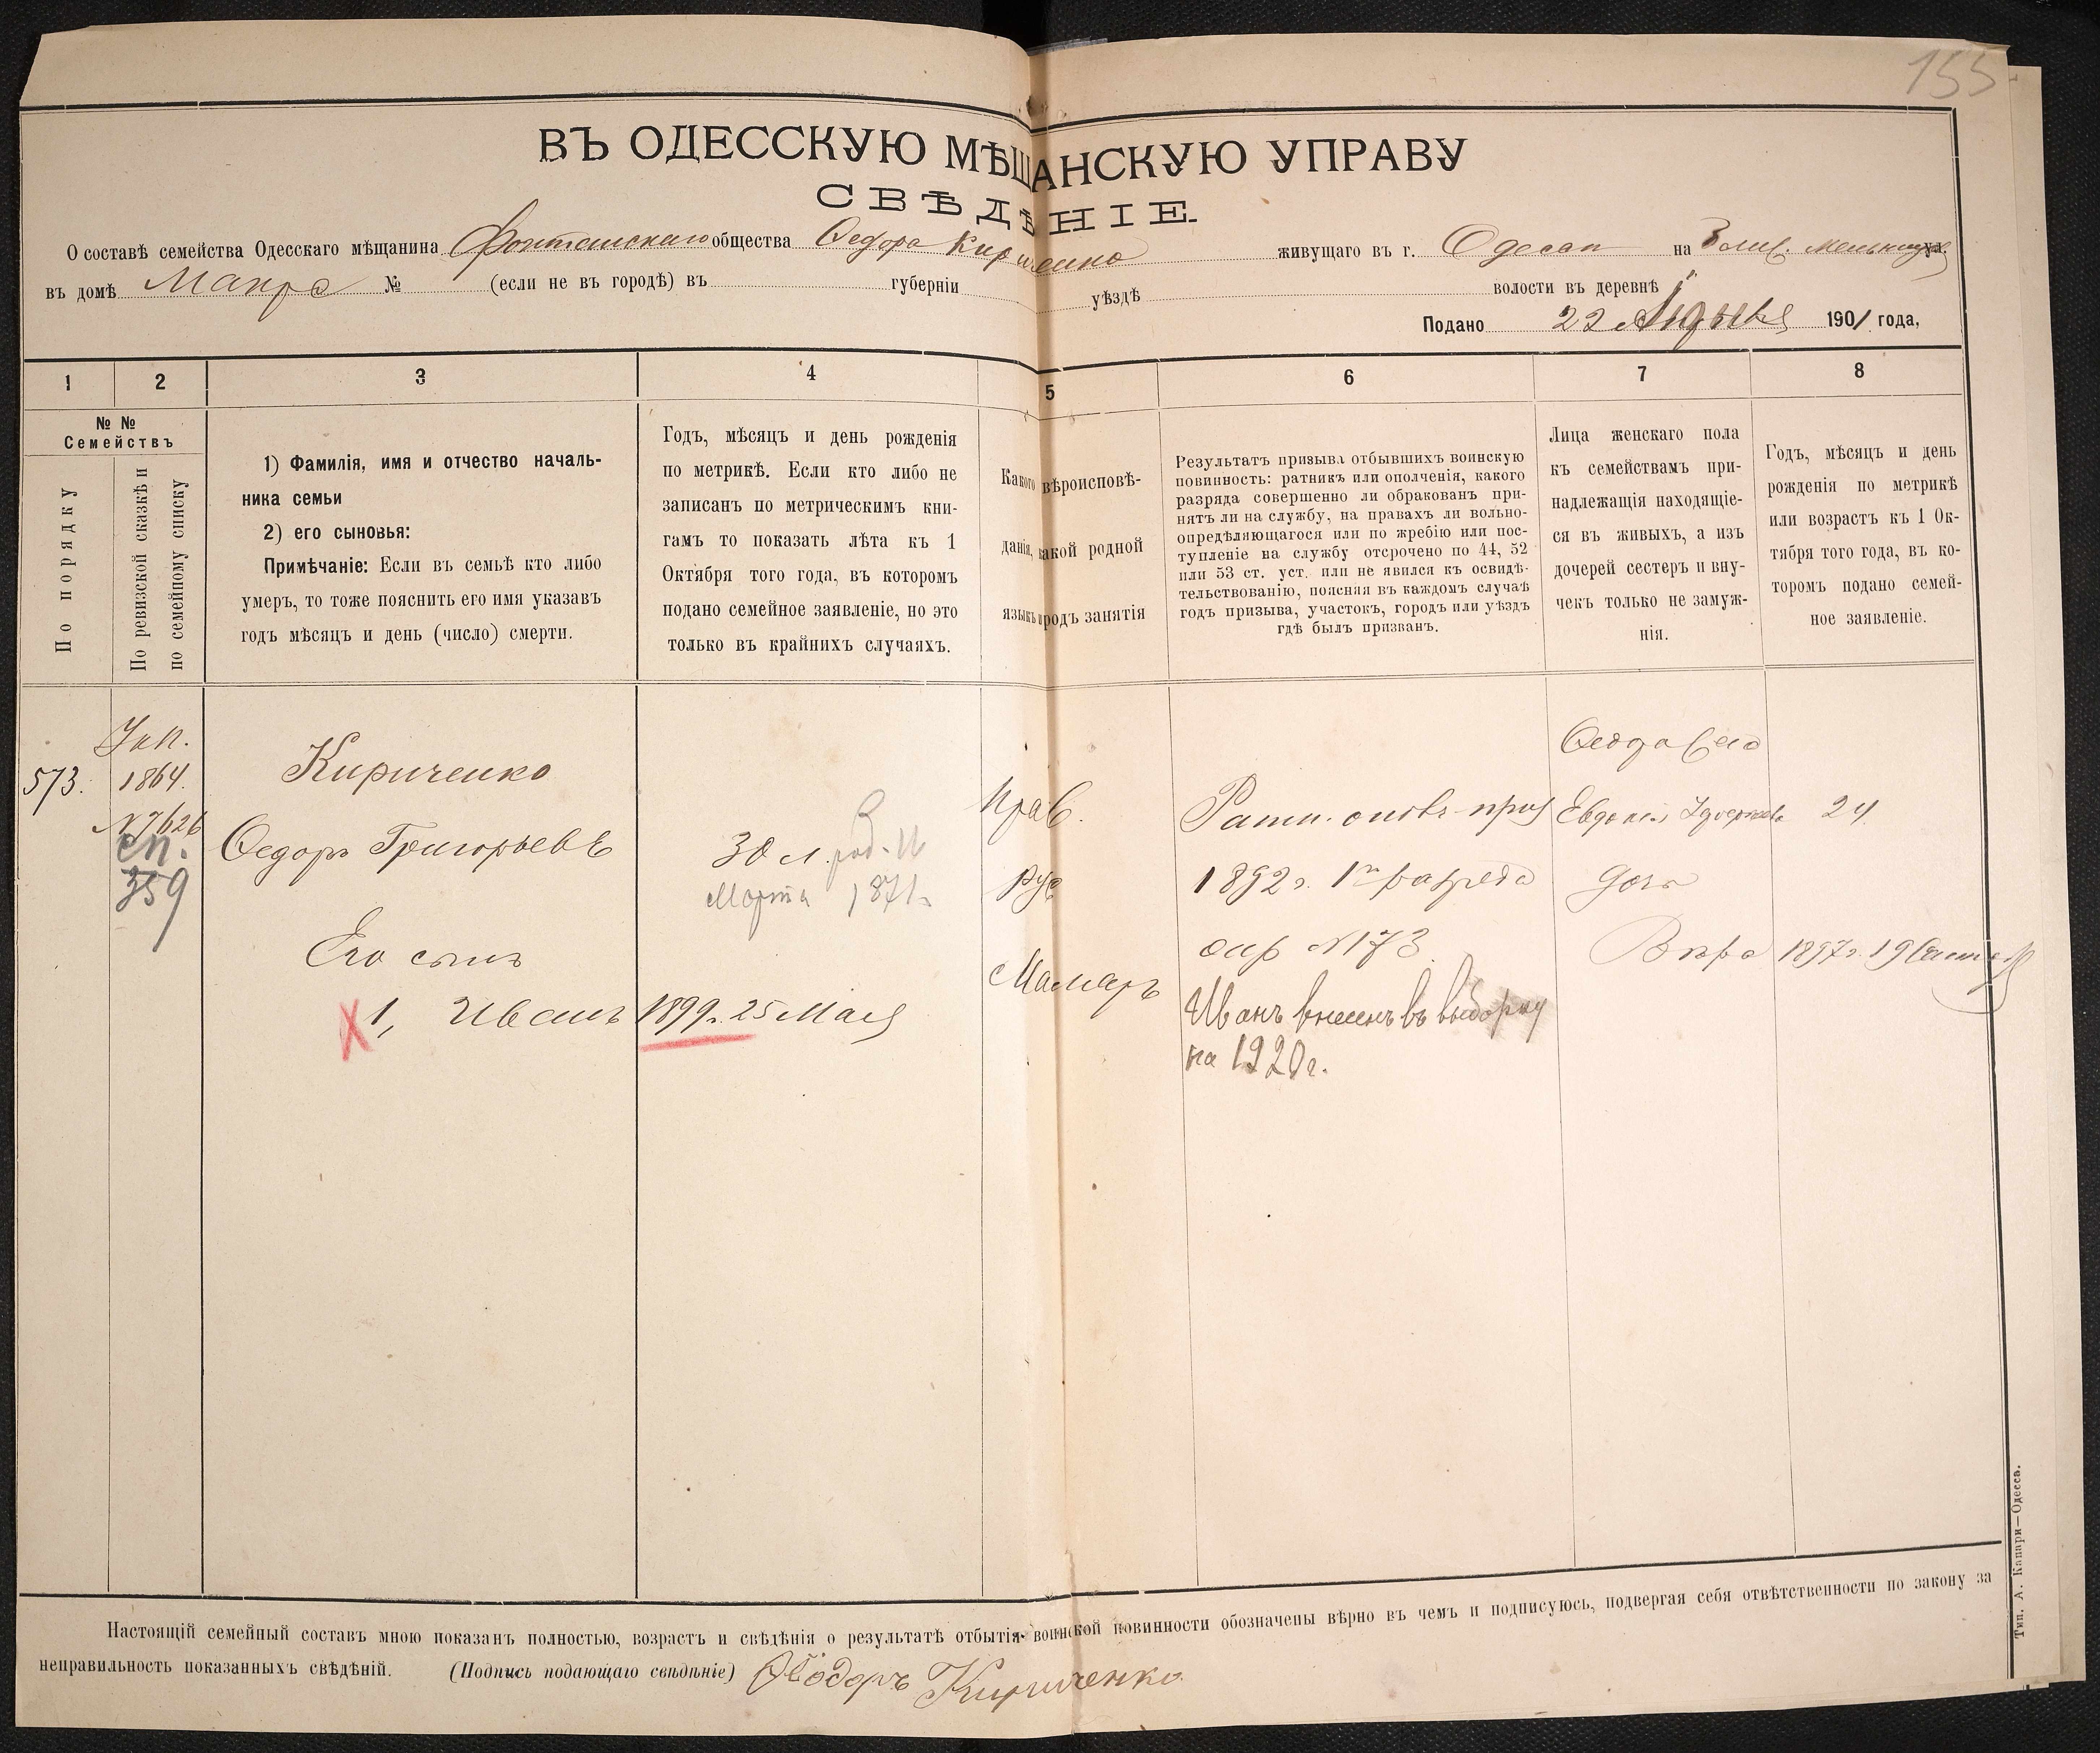 155
ВЪ ОДЕССКУЮ МѢЩАНСКУЮ УПРАВУ
СВѢДѢНІЕ.
О составѣ семейства Одесскаго мѣщанина Фонтанскаго общества Ѳедора Кириченко живущаго въ г. Одессѣ на Ближ. Мельницах ул.
въ домѣ № (если не въ городѣ) въ губерніи уѣздѣ волости въ деревнѣ
Подано 22 1901 года,
1 2 3 4 5 6 7 8
№ №
Семействъ
По порядку
По ревизской сказкѣ и
по семейному списку
1) Фамилія, имя и отчество началь-
ника семьи
2) его сыновья:
Примѣчаніе: Если въ семьѣ кто либо
умеръ, то тоже пояснить его имя указавъ
годъ мѣсяцъ и день (число) смерти.
Годъ, мѣсяцъ и день рожденія
по метрикѣ. Если кто либо не
записанъ по метрическимъ кни-
гамъ то показать лѣта къ 1
Октября того года, въ которомъ
подано семейное заявленіе, но это
только въ крайнихъ случаяхъ.
Какого вѣроисповѣ-
данія, какой родной
языкъ и родъ занятія
Результатъ призыва отбывшихъ воинскую
повинность: ратникъ или ополченія, какого
разряда совершенно ли обракованъ при-
нятъ ли на службу, на правахъ ли вольно-
опредѣляющагося или по жребію или пос-
тупленіе на службу отсрочено по 44, 52
или 53 ст. уст. или не явился къ освидѣ-
тельствованію, поясняя въ каждомъ случаѣ
годъ призыва, участокъ, городъ или уѣздъ
гдѣ былъ призванъ.
Лица женскаго пола
къ семействамъ при-
надлежащія находящіе-
ся въ живыхъ, а изъ
дочерей сестеръ и вну-
чекъ только не замуж-
нія.
Годъ, мѣсяцъ и день
рожденія по метрикѣ
или возрастъ къ 1 Ок-
тября того года, въ ко-
торомъ подано семей-
ное заявленіе.
573.
1864.
№ 7626
сп.
359
Кириченко
Ѳедоръ Григорьевъ
Его сынъ
1, Иванъ
30 л. род. 11
Марта 1871 г.
1899 г. 25 Мая
Прав.
Рус
Маляръ
Ратн. опол. приз
1892 г. 1го разряда
№ 173
Иванъ внесенъ въ выборку
на 1920 г.
Ѳедора жена
Евдокія 24
дочь
Вѣра 1897 г. 19 Сентяб
Настоящій семейный составъ мною показанъ полностью, возрастъ и свѣдѣнія о результатѣ отбытія воинской повинности обозначены вѣрно въ чемъ и подписуюсь, подвергая себя отвѣтственности по закону за
неправильность показанныхъ свѣдѣній. (Подпись подающаго свѣдѣніе) Ѳёдоръ Кириченко.
Тип. А. Капари—Одесса.